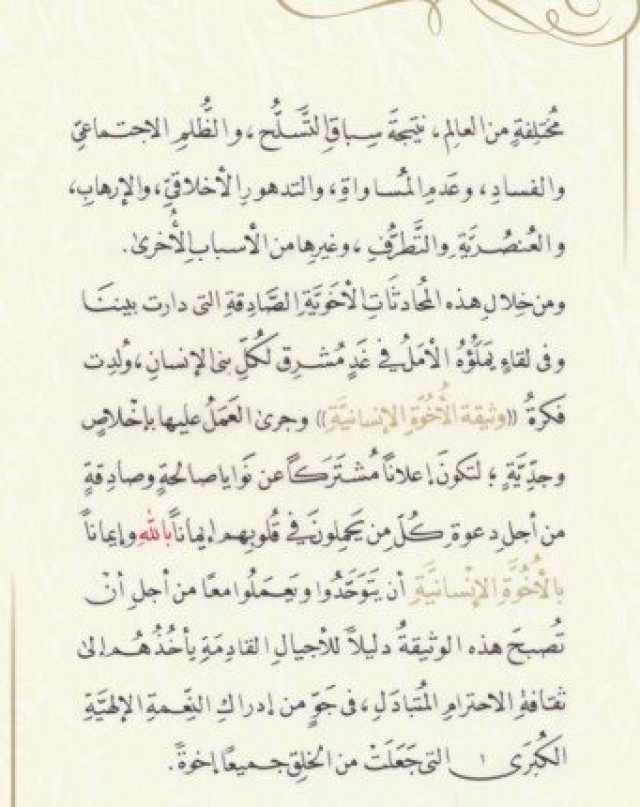 مُخْتَلِفَةٍ من العالِم، نتيجةَ سِباقِ التَّسَلُّح، والظُّلمِ الاجتماعيِّ
والفسادِ، وعَدمِ المُساواةِ، والتدهورِ الأخلاقيِّ، والإرهابِ،
والعُنصُريَّةِ والتَّطرُّفِ، وغيرِها من الأسبابِ الأُخرىٰ.
ومن خلالِ هذه المُحادثَاتِ الأخَويَّةِ الصَّادِقةِ التي دارت بيننا
وفى لقاءٍ يَملَؤُهُ الأمَلُ في غَدٍ مُشرِق لكُلِّ بنى الإنسانِ، ولدت
فكرةُ ((وثيقة الأُخُوَّةِ الإنسانيَّةِ)) وجرىٰ العَمَلُ عليها بإخْلاصٍ
وجدِّيَّةٍ؛ لتكونَ إعلانًا مُشتَرَكًا عن نَوايا صالحةٍ وصادِقةٍ
من أجلِ دعوةِ كُلِّ مِن يَحمِلونَ في قُلوبِهم إيمانًا باللهِ وإيمانًا
بالأُخُوَّةِ الإنْسانيَّةِ أن يَتَوَحَّدُوا ويَعمَلُوا معًا من أجلِ أنْ
تُصبحَ هذه الوثيقةُ دليلًا للأجيالِ القادِمَةِ يأخُذُهُم إلىٰ
ثقافةِ الاحترامِ المُتبادَلِ، فى جَوٍّ من إدراكِ النِّعمةِ الإلهيَّةِ
الكُبرَى التى جَعَلَتْ من الخلقِ جميعًا إخوةً.